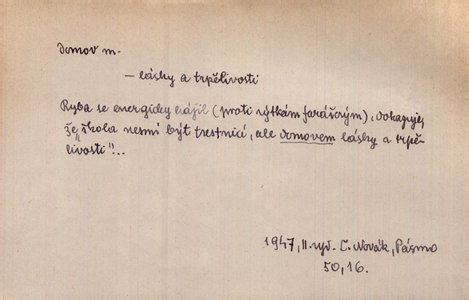 domov m.
– lásky a trpělivosti
Ryba se energicky hájil (proti výtkám farářovým), dokazuje,
že „škola nesmí být trestnicí, ale domovem lásky a trpě-
livosti“...
1947, II. vyd. Č. Novák, Pásmo
50, 16.